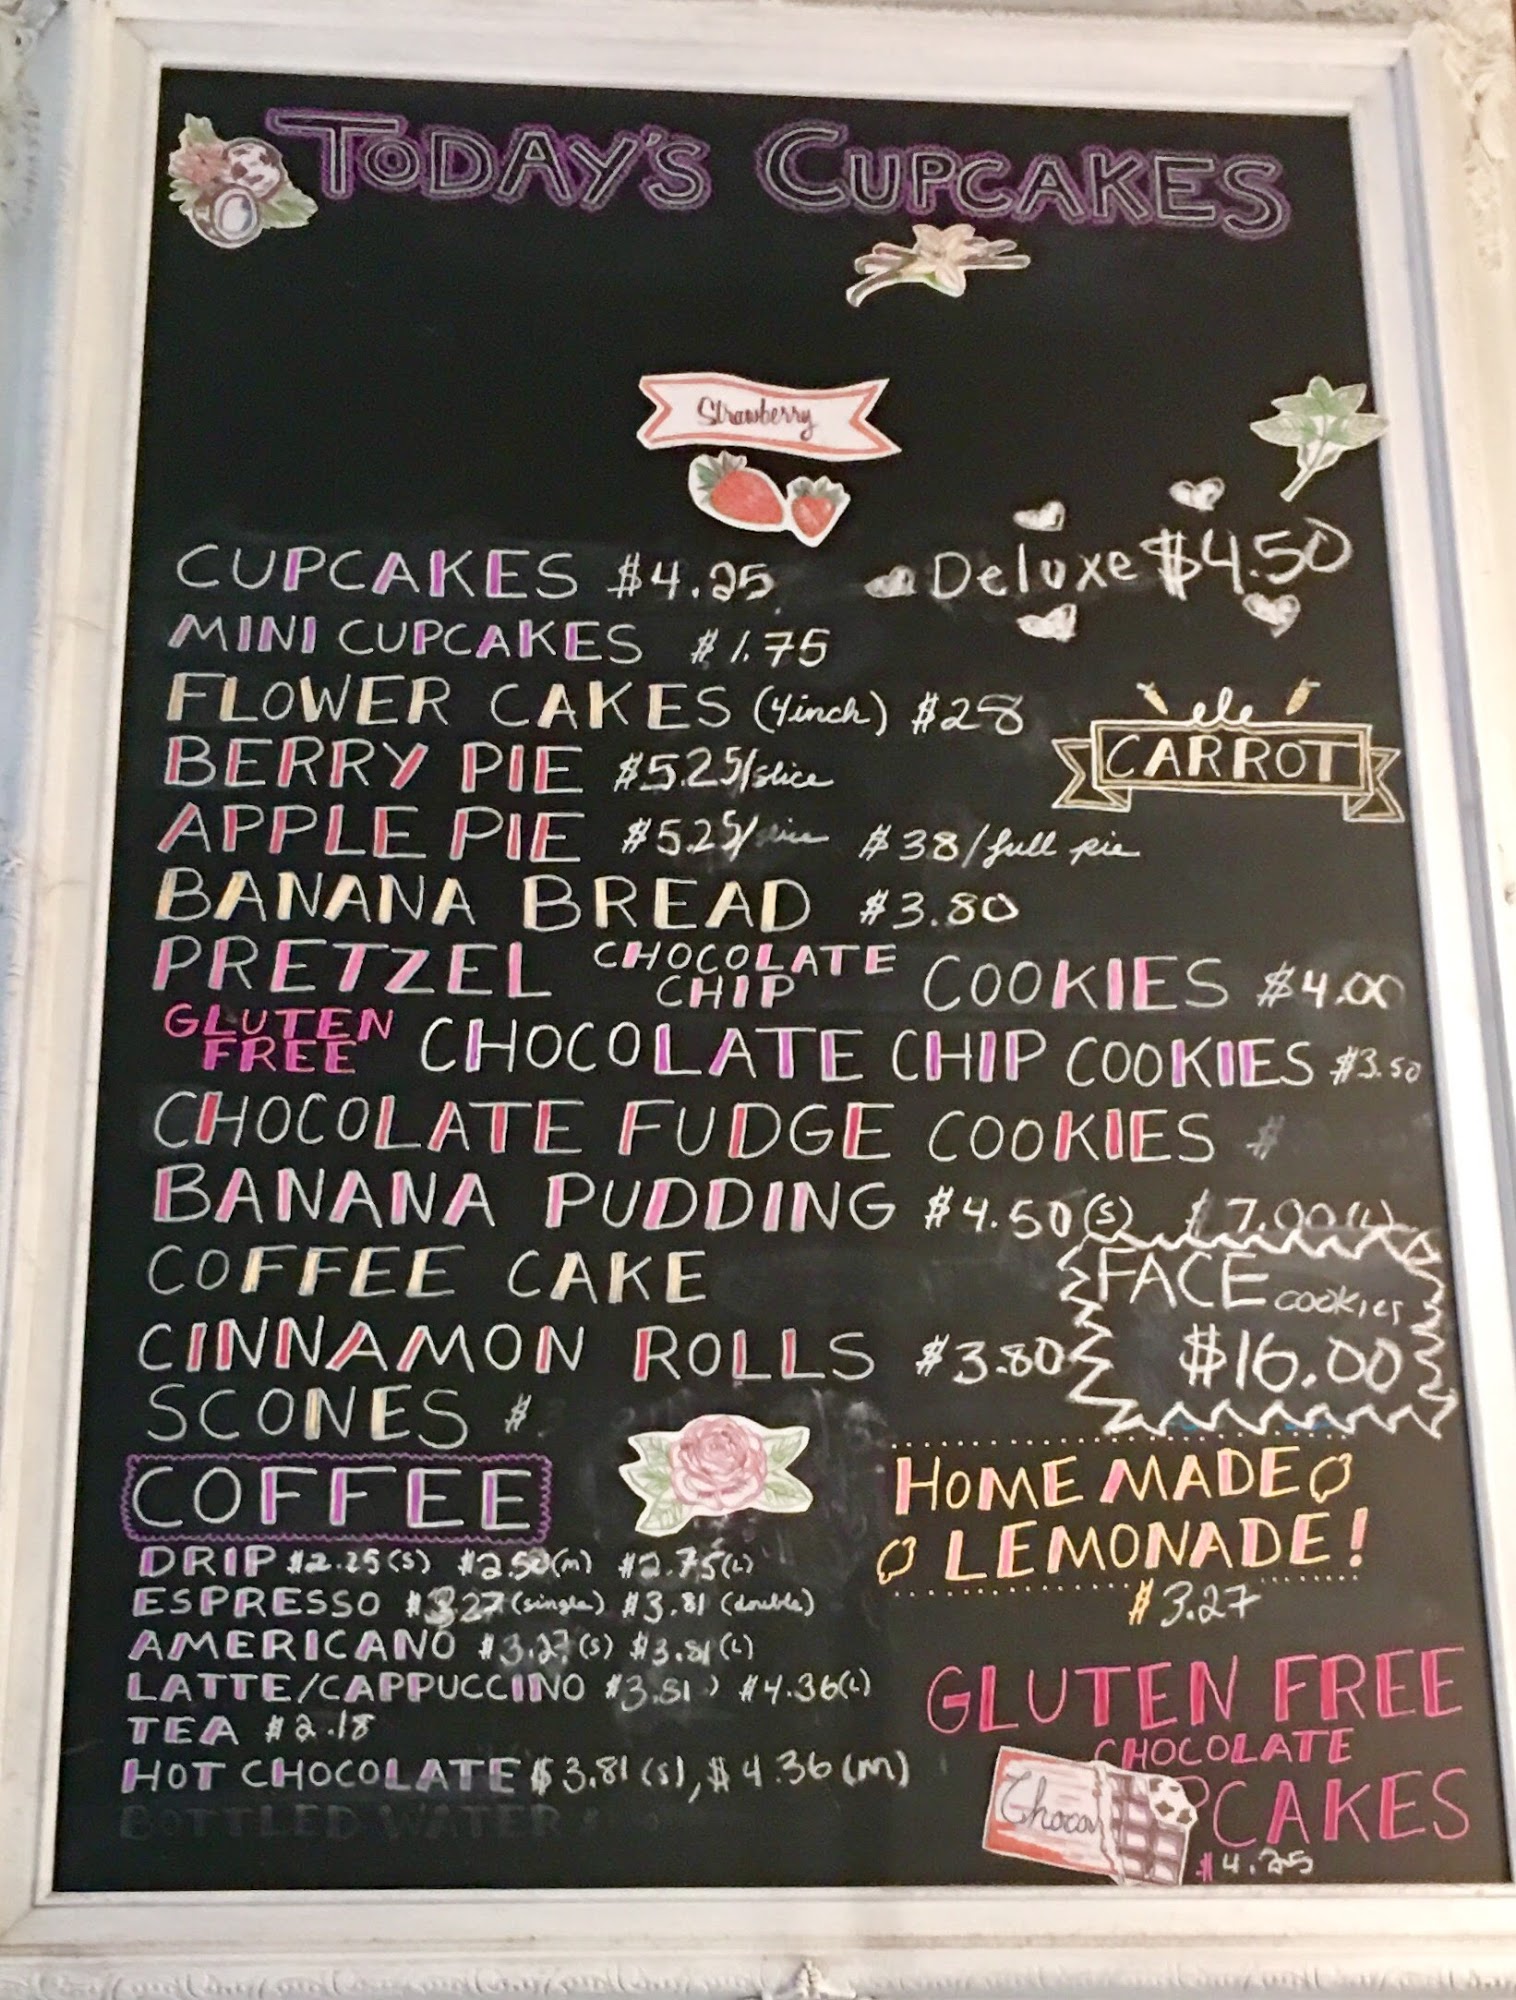 TODAY'S CUPCAKES
Strawberry
CUPCAKES $4.25
Deluxe $4.50
MINI CUPCAKES $1.75
FLOWER CAKES (4inch) $28
ele
CARROT
BERRY PIE $5.25/slice
APPLE PIE $5.25/slice $38/full pie
BANANA BREAD $3.80
PRETZEL CHOCOLATE CHIP COOKIES $4.00
GLUTEN FREE CHOCOLATE CHIP COOKIES $3.50
CHOCOLATE FUDGE COOKIES $
BANANA PUDDING $4.50(S) $7.00(L)
COFFEE CAKE
FACE cookies
$16.00
CINNAMON ROLLS $3.80
SCONES $
COFFEE
DRIP $2.25(S) $2.50(m) $2.75(L)
ESPRESSO $3.27(single) $3.81 (double)
AMERICANO $3.27(S) $3.81(L)
LATTE/CAPPUCCINO $3.81 ) $4.36(L)
TEA $2.18
HOT CHOCOLATE $3.81(S), $4.36(m)
BOTTLED WATER
HOME MADE
LEMONADE!
$3.27
GLUTEN FREE
CHOCOLATE
PCAKES
Chocol
$4.25